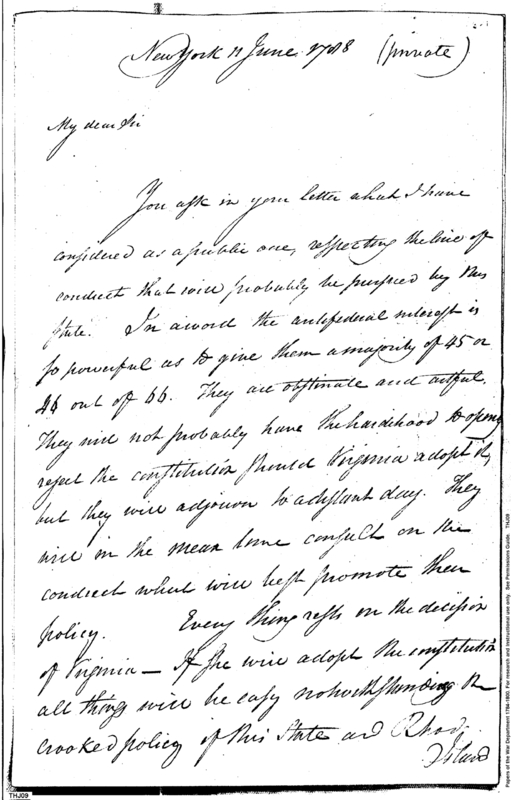 New York 11 June 1788 (private)
My dear Sir
You ask in your letter what I have
considered as a public one, respecting the line of
conduct that will probably be pursued by this
state. In a word the antifederal interest is
so powerful as to give them a majority of 45 or
46 out of 66. They are obstinate and artful.
They will not probably have the hardihood to openly
reject the constitution should Virginia adopt it,
but they will adjourn to a distant day. They
will in the mean time consult on the
conduct what will best promote their
policy. Every thing rests on the decision
of Virginia — If she will adopt the constitution
all things will be easy notwithstanding the
crooked policy of this State and Rhode
Island
THJ09
Papers of the War Department 1784-1800. For research and instructional use only. See Permissions Guide. THJ09